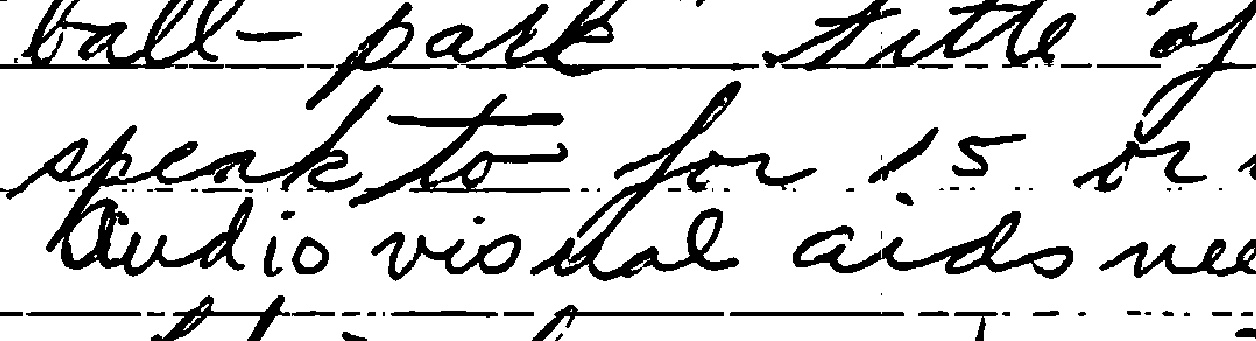 ball-park title of
speak to for 15 or
Audio visual aids nee